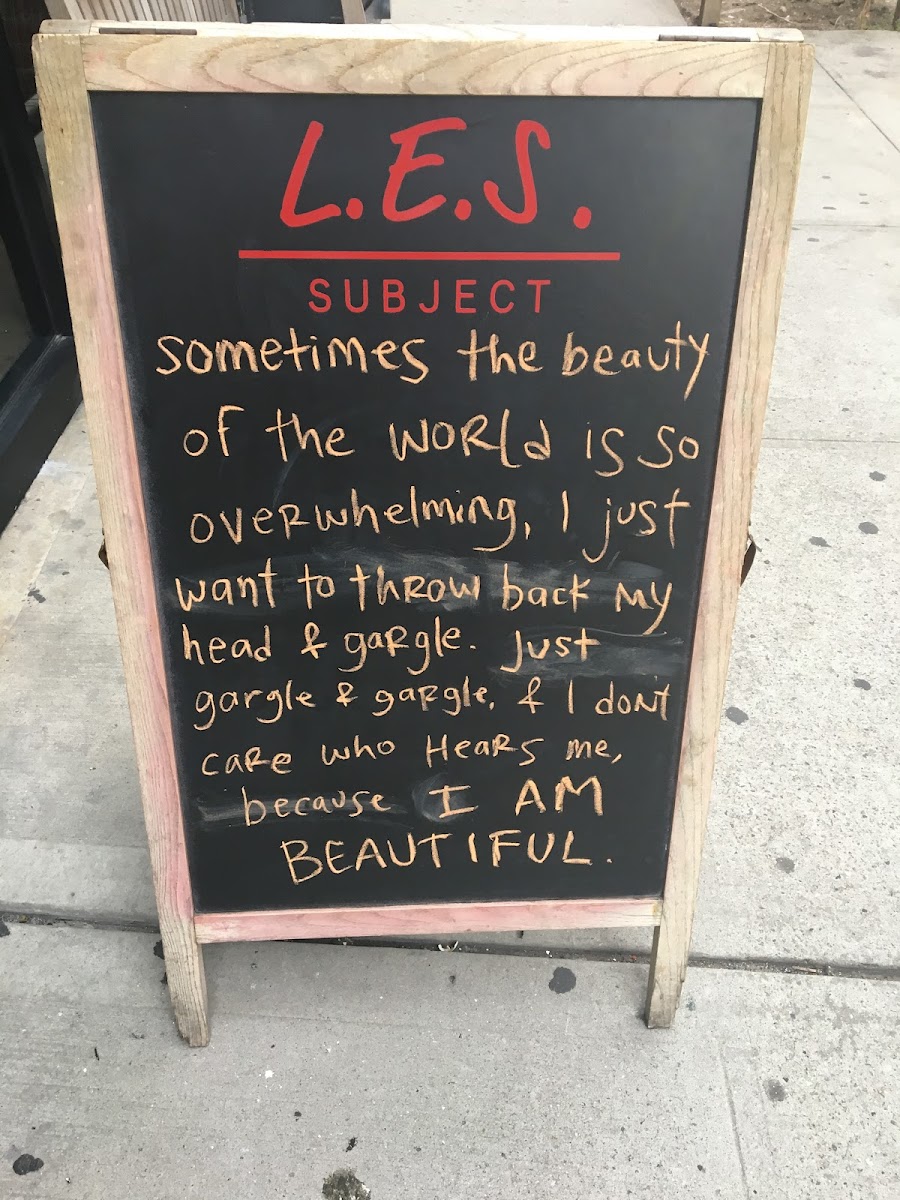 L.E.S.
SUBJECT
sometimes the beauty
of the WORld is so
overwhelming, I just
want to throw back my
head & gargle. Just
gargle & gargle, & I don't
care who Hears me,
because I AM
BEAUTIFUL.